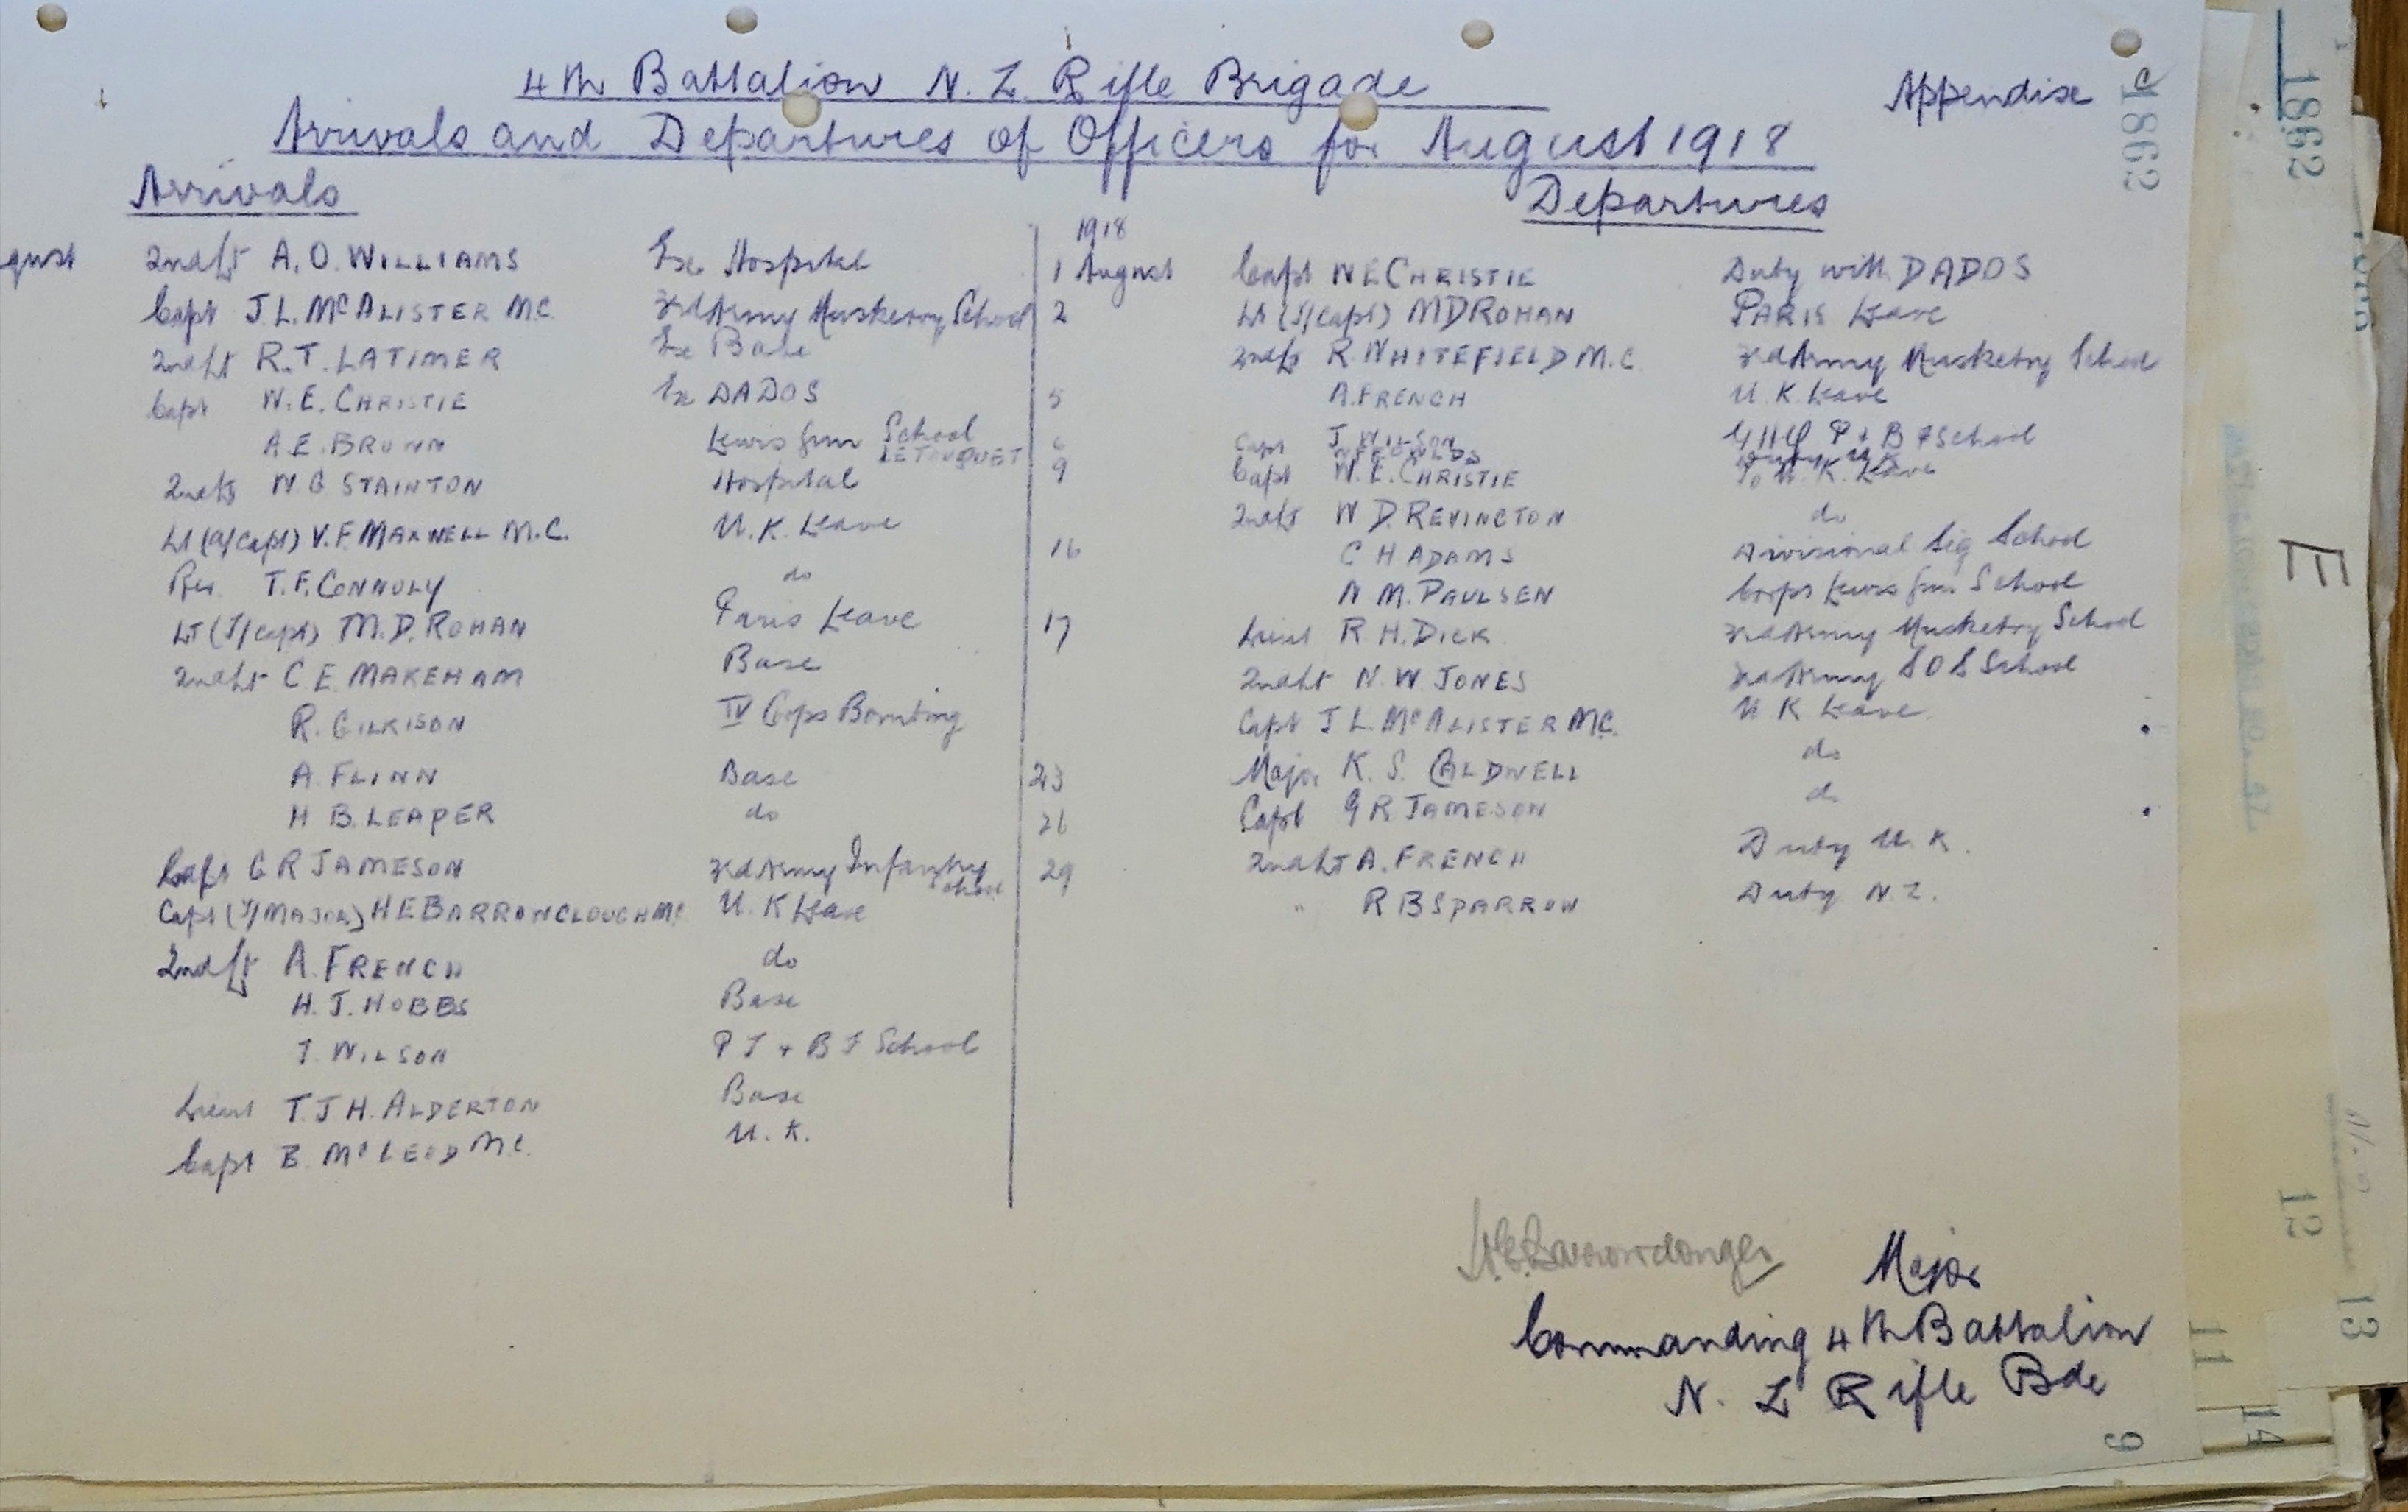 4th Battalion N. Z. Rifle Brigade
Appendix
Arrivals and Departures of Officers for August 1918
Arrivals
gust 2nd Lt A. O. WILLIAMS Ex Hospital
Capt J. L. McALISTER M.C. 3rd Army Musketry School
2nd Lt R. T. LATIMER Ex Base
Capt W. E. CHRISTIE Ex DADOS
A. E. BROWN Lewis Gun School LE TOUQUET
2nd Lt W. G STAINTON Hospital
Lt (a/Capt) V. F. MAXWELL M.C. U. K. Leave
Rev. T. F. CONNOLY do
LT (T/Capt) M. D. ROHAN Paris Leave
2nd Lt C E. MAKEHAM Base
R. GILKISON IV Corps Bombing
A. FLINN Base
H B. LEAPER do
Capt G R JAMESON 3rd Army Infantry School
Capt (T/MAJOR) H E BARROWCLOUGH MC U. K Leave
2nd Lt A. FRENCH do
H. J. HOBBS Base
J. WILSON P T + B F School
Lieut T. J H. ALDERTON Base
Capt B. McLEOD M.C. U. K.
Departures
1918
1 August Capt W E CHRISTIE Duty with DADOS
2 Lt (T/Capt) M D ROHAN PARIS Leave
2nd Lt R. WHITEFIELD M.C. 3rd Army Musketry School
5 A. FRENCH U. K. Leave
6 Capt J. WILSON GHQ P + B F School
9 Capt W. E. CHRISTIE To U. K. Leave
2nd Lt W D. REVINGTON do
16 C H ADAMS Divisional Sig School
N M. PAULSEN Corps Lewis Gun School
17 Lieut R. H. DICK 3rd Army Musketry School
2nd Lt N. W. JONES 3rd Army S O S School
Capt J L. McALISTER MC. U K Leave.
23 Major K. S. CALDWELL do
26 Capt G R JAMESON do
29 2nd Lt A. FRENCH Duty U. K.
" R B SPARROW Duty N. Z.
H.E. Barrowclough Major
Commanding 4th Battalion
N. Z Rifle Bde
1862
1862
E
12
13
11
14
9